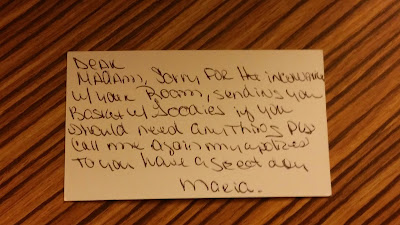 Dear
Madam, Sorry for the inconvience
w/ your Room, sending you
Basket w/ Goodies if you
should need anything pls
call me again my apologies
To you have a great day
Maria.